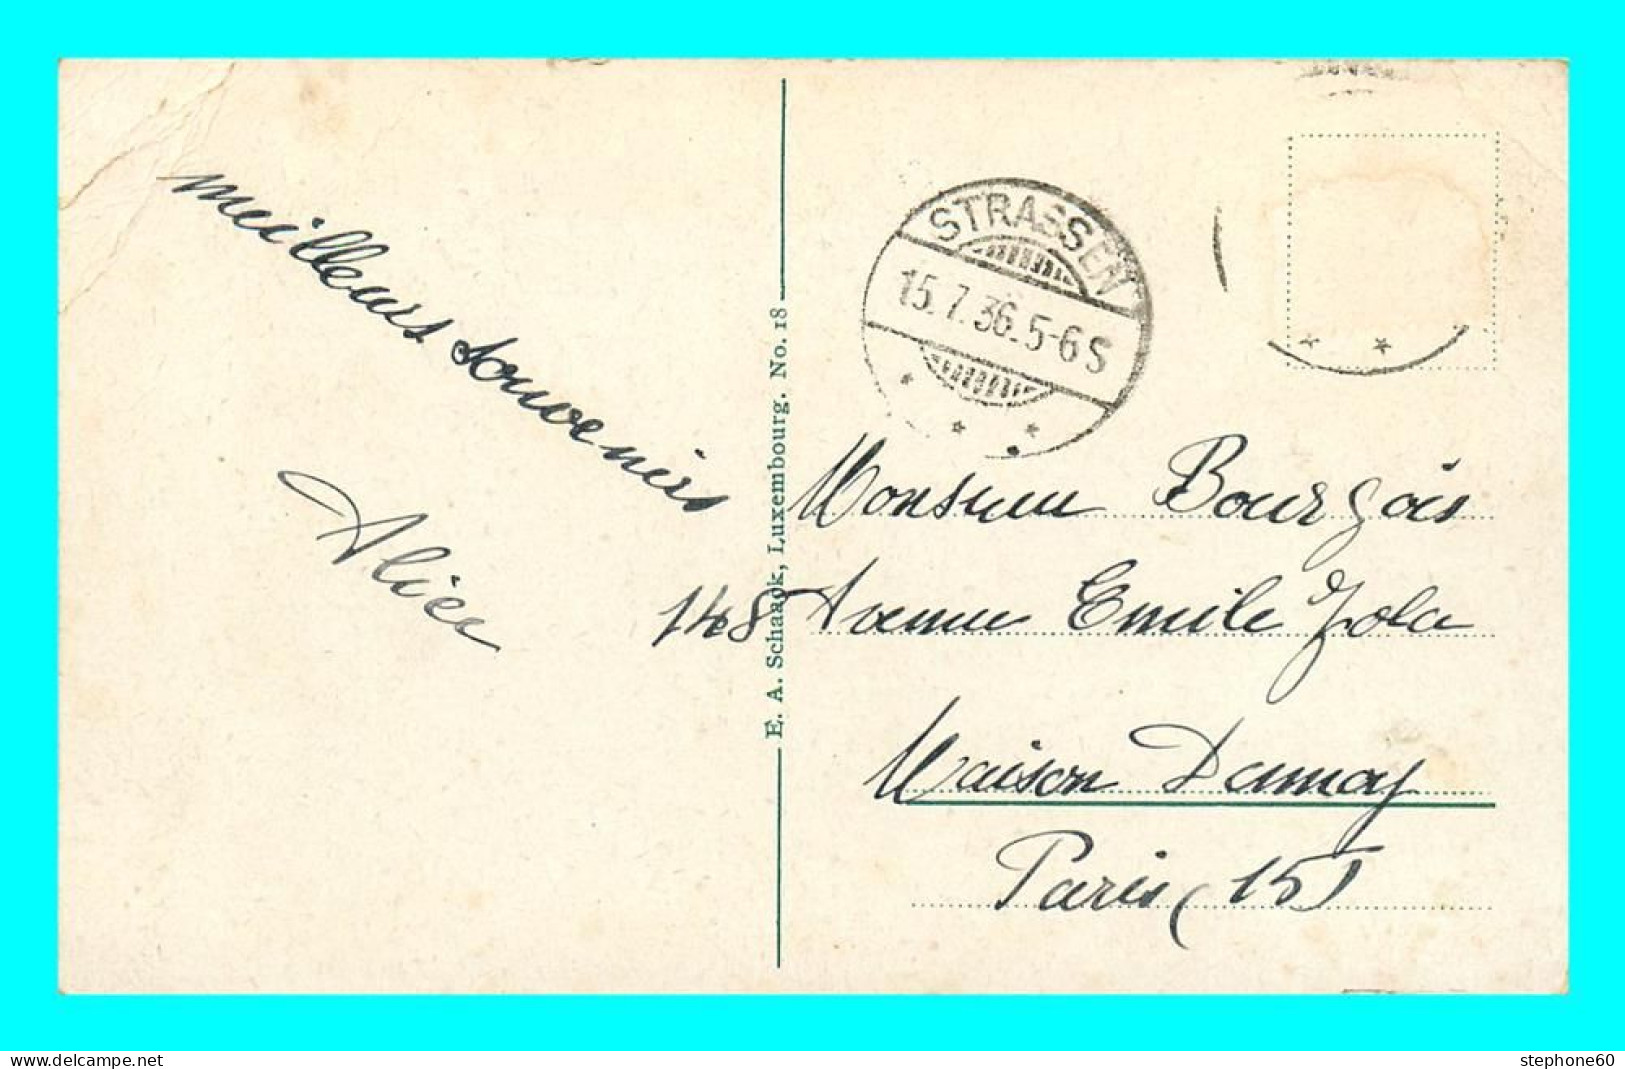 STRASSEN
15.7.36.5-6 S
meilleurs souvenirs
Alice
E. A. Schaack, Luxembourg. No. 18
Monsieur Bourgois
148 Avenue Emile Zola
Maison Damoy
Paris (15)
www.delcampe.net
stephone60